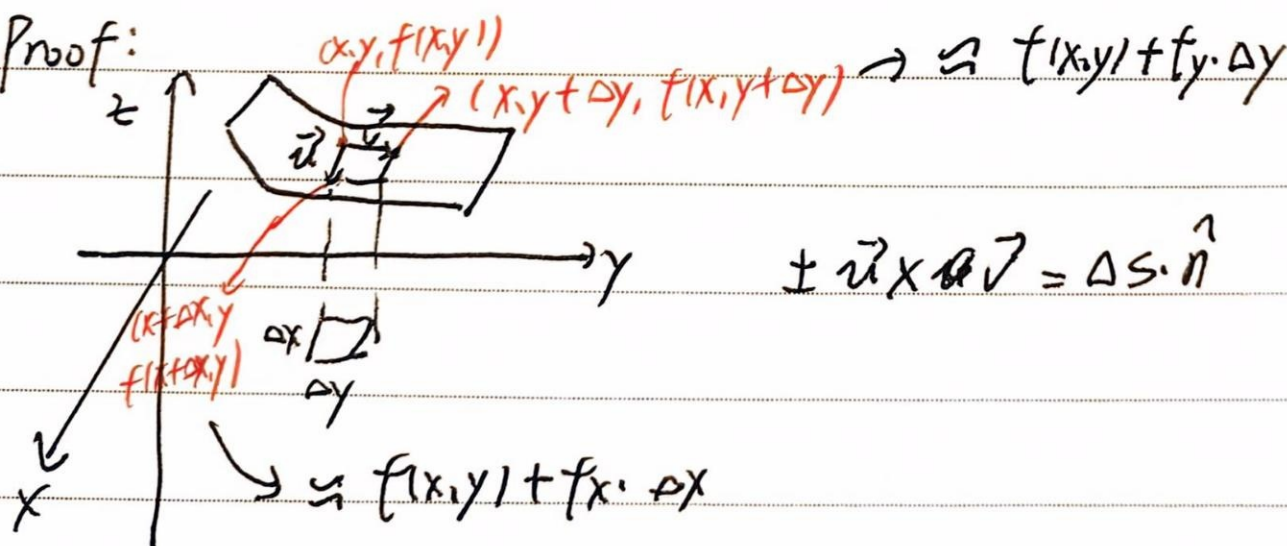 Proof:
(x,y,f(x,y))
z
(x,y+Δy, f(x,y+Δy)) → ≈ f(x,y)+fy·Δy
u⃗
v⃗
y
± u⃗ × v⃗ = Δs·n̂
(x+Δx,y
f(x+Δx,y)
Δx
Δy
x
→ ≈ f(x,y)+fx·Δx